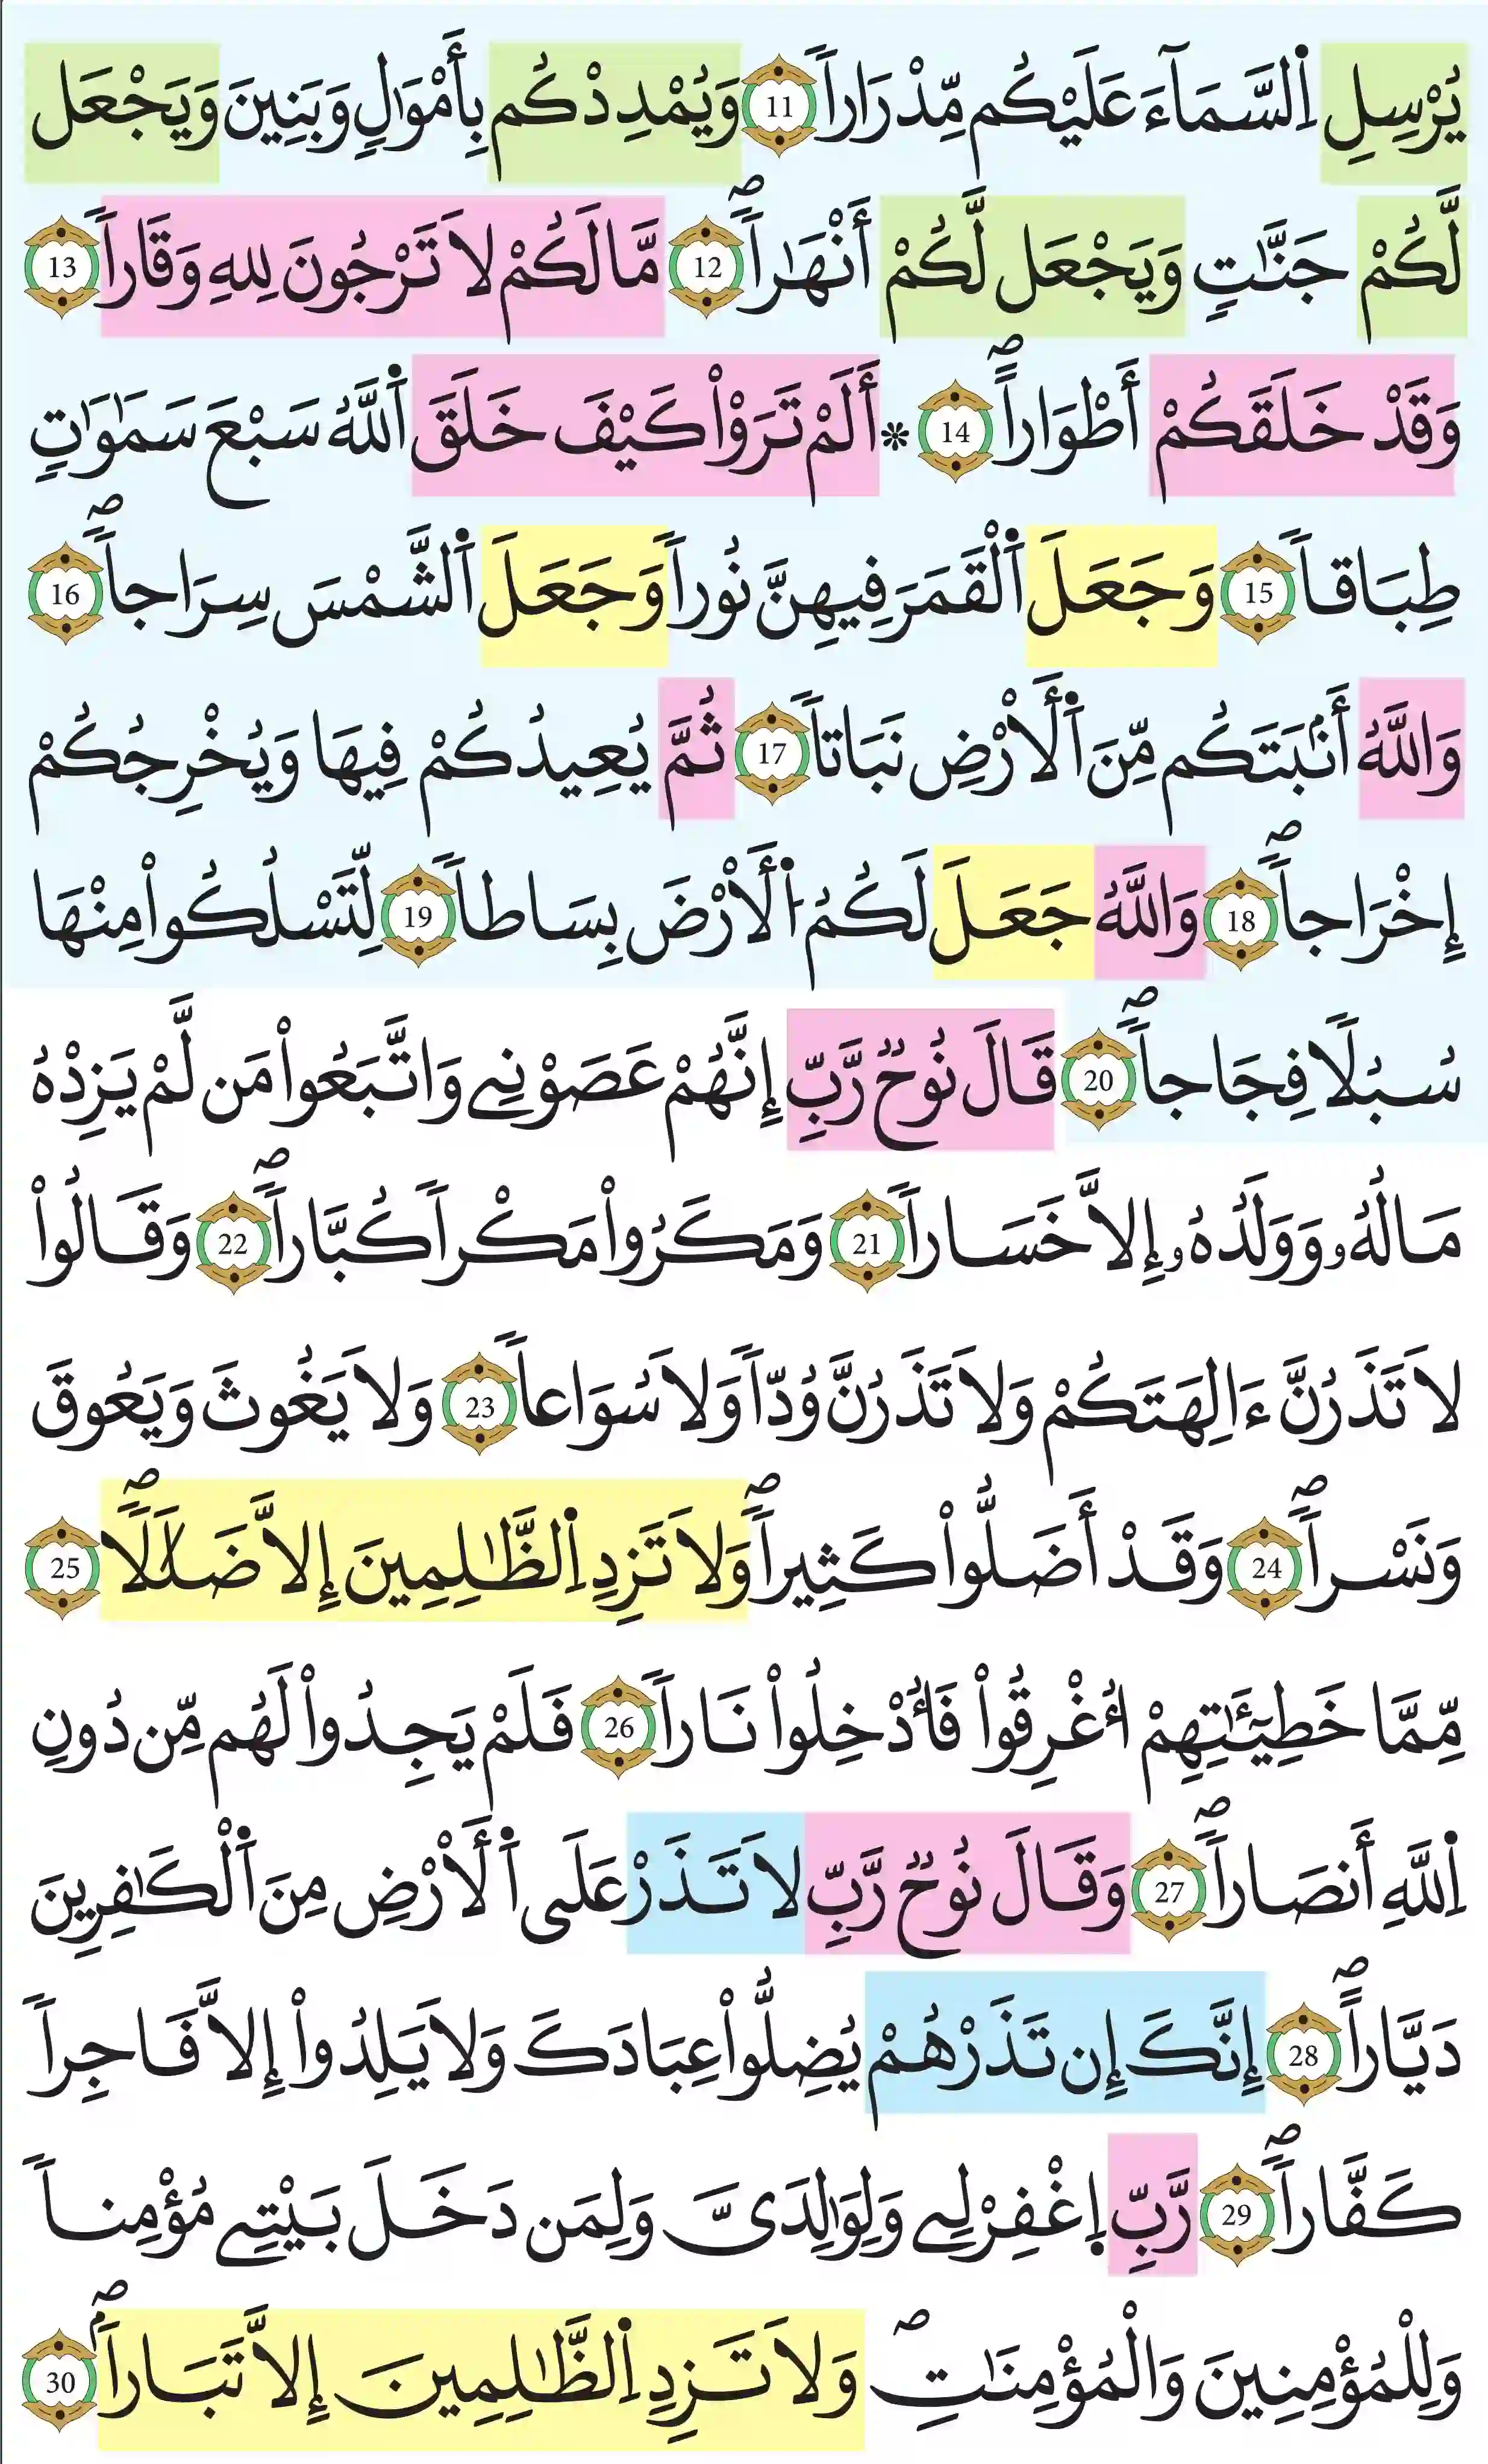 يُرْسِلِ اِ۬لسَّمَآءَ عَلَيْكُم مِّدْرَاراٗ 11 وَيُمْدِدْكُم بِأَمْوَٰلٖ وَبَنِينَ وَيَجْعَل
لَّكُمْ جَنَّٰتٖ وَيَجْعَل لَّكُمْ أَنْهَٰراٗۖ 12 مَّا لَكُمْ لَا تَرْجُونَ لِلهِ وَقَاراٗ 13
وَقَدْ خَلَقَكُمْ أَطْوَاراًۖ 14 * أَلَمْ تَرَوْاْ كَيْفَ خَلَقَ اَ۬للَّهُ سَبْعَ سَمَٰوَٰتٖ
طِبَاقاٗ 15 وَجَعَلَ اَ۬لْقَمَرَ فِيهِنَّ نُوراٗ وَجَعَلَ اَ۬لشَّمْسَ سِرَاجاٗۖ 16
وَاللَّهُ أَنۢبَتَكُم مِّنَ اَ۬لْأَرْضِ نَبَاتاٗ 17 ثُمَّ يُعِيدُكُمْ فِيهَا وَيُخْرِجُكُمْ
إِخْرَاجاٗۖ 18 وَاللَّهُ جَعَلَ لَكُمُ اُ۬لْأَرْضَ بِسَاطاٗ 19 لِّتَسْلُكُواْ مِنْهَا
سُبُلاٗ فِجَاجاٗۖ 20 قَالَ نُوحٞ رَّبِّ إِنَّهُمْ عَصَوْنِے وَاتَّبَعُواْ مَن لَّمْ يَزِدْهُ
مَالُهُۥ وَوَلَدُهُۥٓ إِلَّا خَسَاراٗ 21 وَمَكَرُواْ مَكْراٗ كُبَّاراٗۖ 22 وَقَالُواْ
لَا تَذَرُنَّ ءَالِهَتَكُمْ وَلَا تَذَرُنَّ وُدّاٗ وَلَا سُوَاعاٗ 23 وَلَا يَغُوثَ وَيَعُوقَ
وَنَسْراٗۖ 24 وَقَدْ أَضَلُّواْ كَثِيراٗۖ وَلَا تَزِدِ اِ۬لظَّٰلِمِينَ إِلَّا ضَلَٰلاٗۖ 25
مِّمَّا خَطِيٓـَٰٔتِهِمْ أُغْرِقُواْ فَأُدْخِلُواْ نَاراٗ 26 فَلَمْ يَجِدُواْ لَهُم مِّن دُونِ
اِ۬للَّهِ أَنصَاراٗۖ 27 وَقَالَ نُوحٞ رَّبِّ لَا تَذَرْ عَلَى اَ۬لْأَرْضِ مِنَ اَ۬لْكَٰفِرِينَ
دَيَّاراًۖ 28 إِنَّكَ إِن تَذَرْهُمْ يُضِلُّواْ عِبَادَكَ وَلَا يَلِدُوٓاْ إِلَّا فَاجِراٗ
كَفَّاراٗۖ 29 رَّبِّ اِ۪غْفِرْ لِے وَلِوَٰلِدَيَّ وَلِمَن دَخَلَ بَيْتِے مُؤْمِناٗ
وَلِلْمُؤْمِنِينَ وَالْمُؤْمِنَٰتِۖ وَلَا تَزِدِ اِ۬لظَّٰلِمِينَ إِلَّا تَبَاراَۢۖ 30